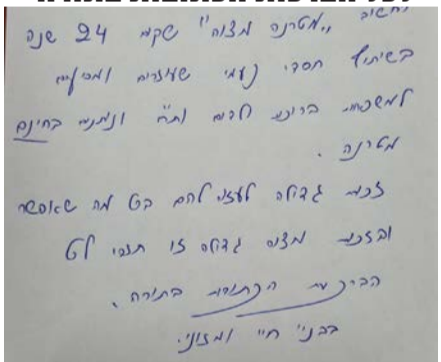 וחשוב "מטרנה מצוה" שקם 24 שנה
בשיתוף חסדי נעמי שעוזרים
למשפחות ברוכות ילדים ונותנים בחינם
מטרנה .
זכות גדולה לעזור להם בכל מה שאפשר
ובזכות מצוה גדולה זו תזכו לכל
הברכות הכתובות בתורה .
בבני חיי ומזוני.